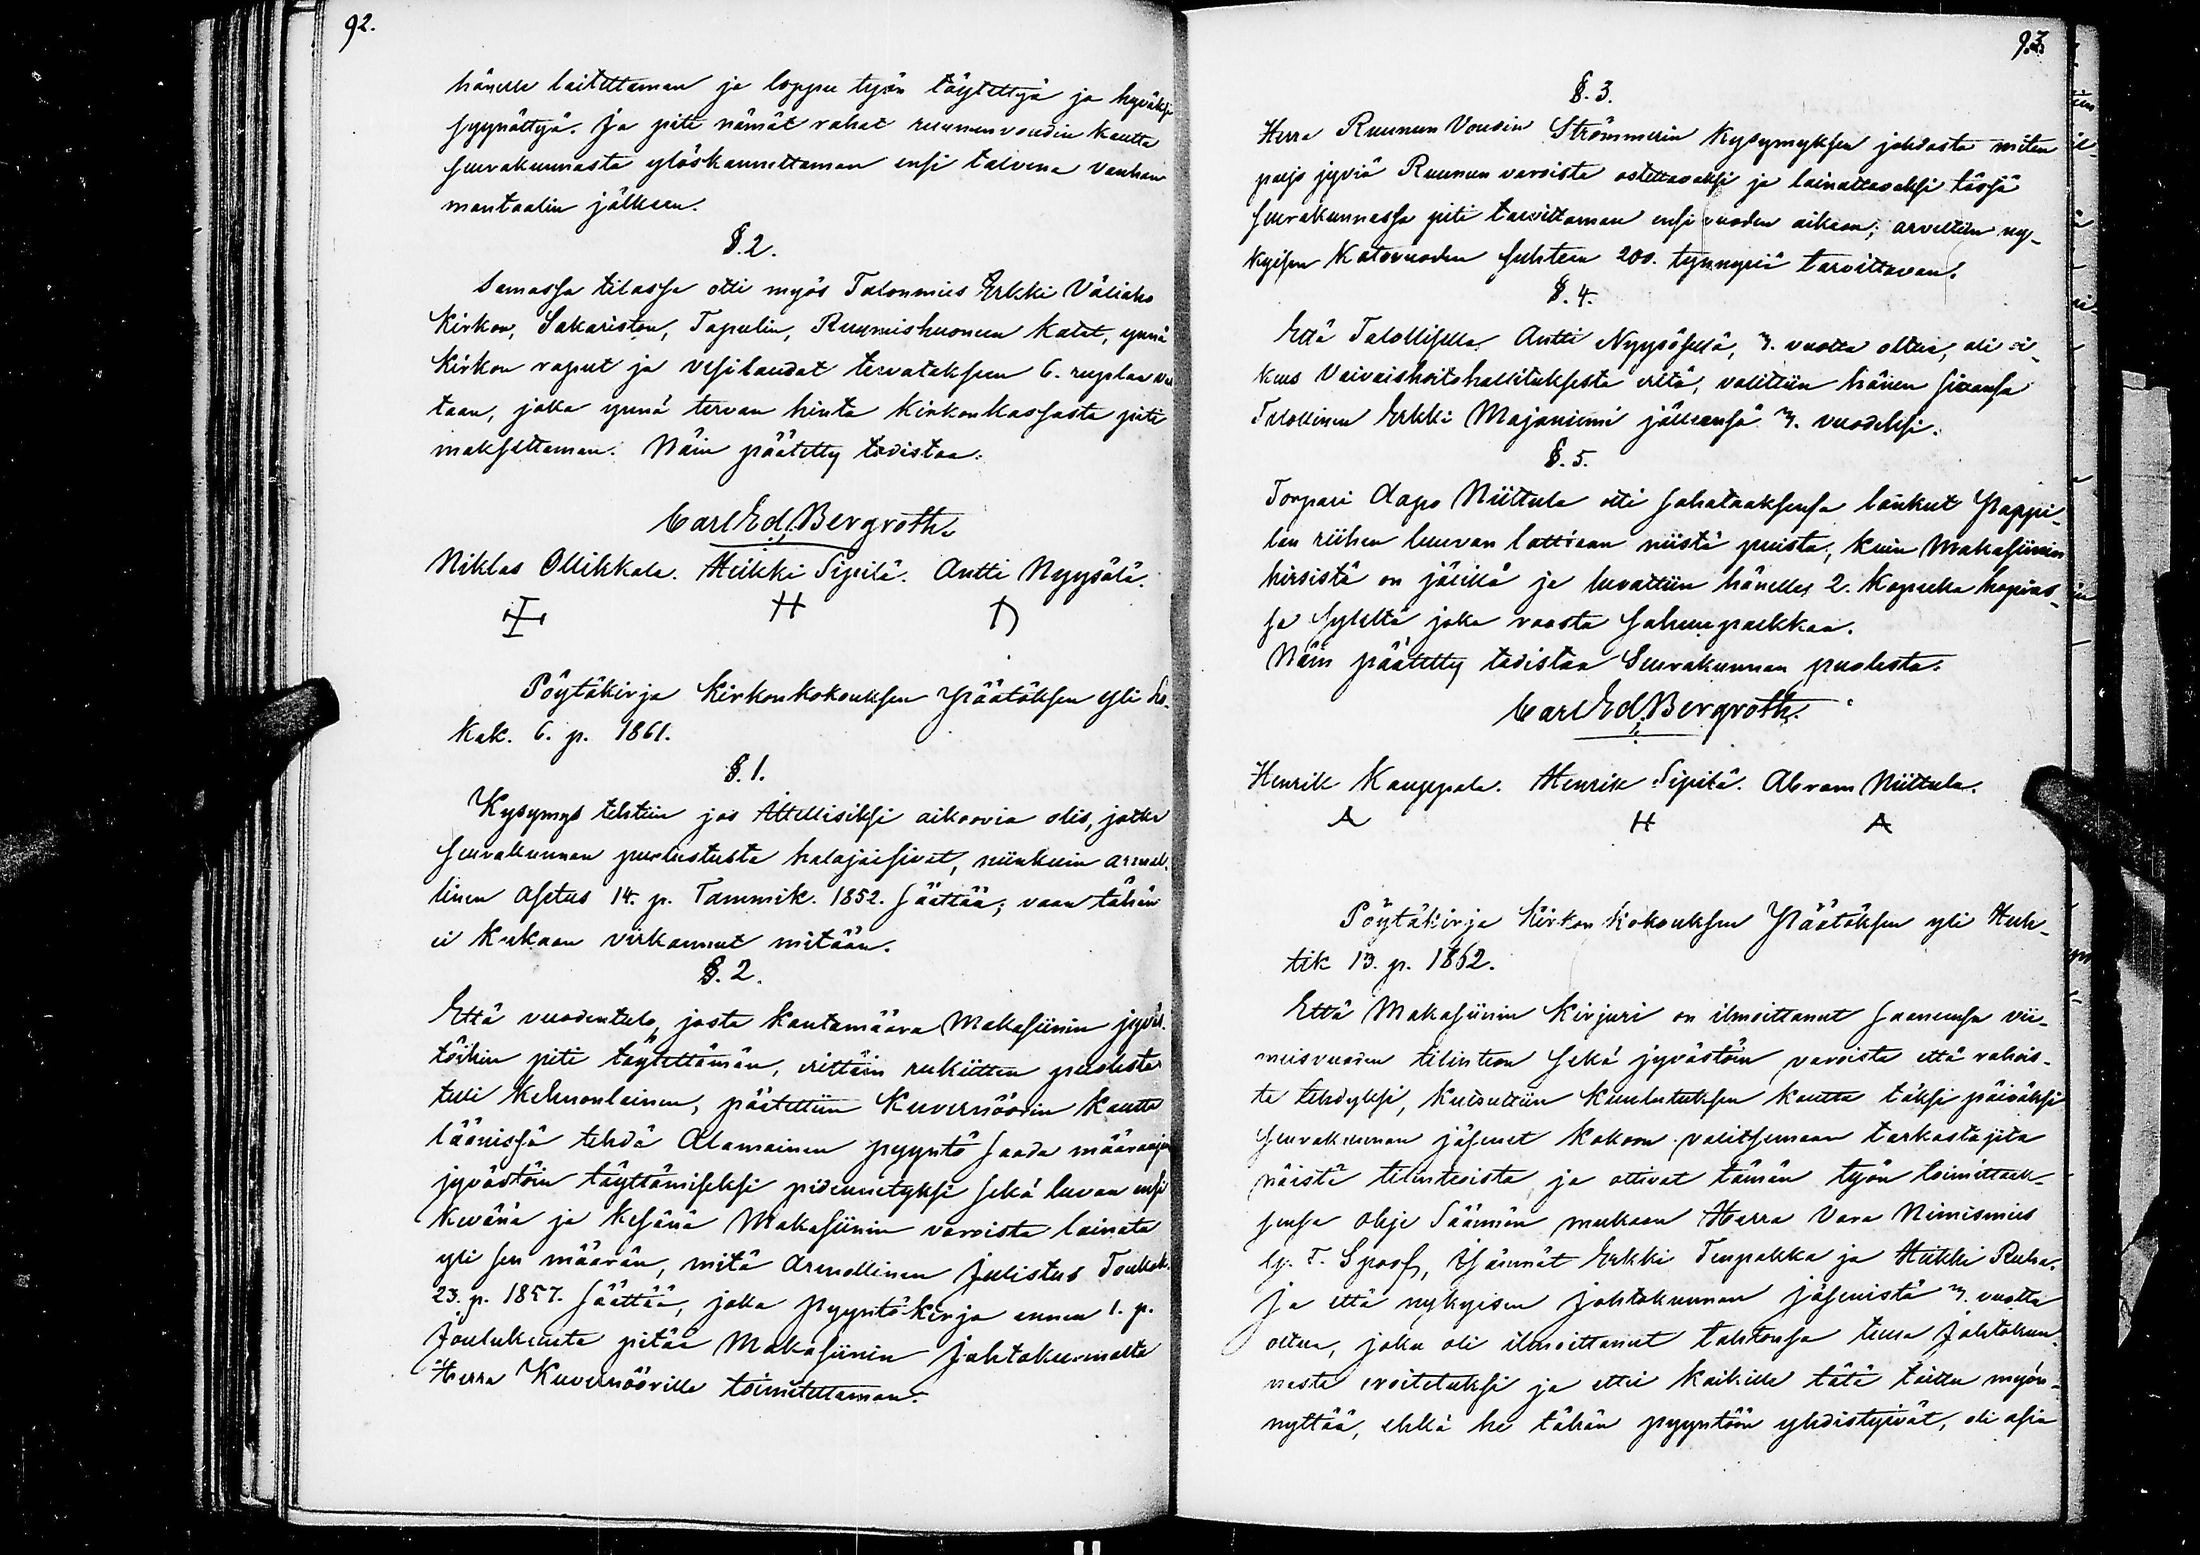 92.
hänelle laitettaman ja loppu työn täytettyä ja hyväksi
syynättyä. Ja piti nämät rahat ruununvoudin kautta
seurakunnasta ylöskannettaman ensi talvena vanhan
mantaalin jälkeen.
§. 2.
Samassa tilassa otti myös Talonmies Erkki Väliaho
Kirkon, Sakariston, Tapulin, Ruumishuoneen katot, ynnä
Kirkon raput ja vesilaudat tervatakseen 6. ruplan
taan, jotka ynnä tervan hinta Kirkonkassasta piti
maksettaman. Näin päätetty todistaa:
Carl Ed. Bergroth.
Niklas Ollikkala. Heikki Sipilä. Antti Nyysölä.
Pöytäkirja Kirkonkokouksen Päätöksen yli Lo-
kak. 6. p. 1861.
§. 1.
Kysymys tehtiin jos Ittellisiksi aikoovia olis, jotka
seurakunnan puolustusta halajaisivat, niinkuin armol-
linen Asetus 14. p. Tammik. 1852. säättää; vaan tähän
ei kukaan virkannut mitään.
§. 2.
Että vuodentulo, josta kantamäärä Makasiinin jyväs-
töihin piti täytettämän, erittäin rukiitten puolesta
tuli kehnonlainen, päätettiin Kuvernöörin kautta
läänissä tehdä Alamainen pyyntö saada määräajan
jyvästöin täyttämiseksi pidennetyksi sekä luvan ensi
keväna ja kesänä Makasiinin varoista lainata
yli sen määrän, mitä Armollinen Julistus Toukok.
23. p. 1857. säättää, joka pyyntö-kirja ennen 1. p.
Joulukuuta pitää Makasiinin Johtokunnalta
Herra Kuvernöörille toimitettaman.
93.
§. 3.
Herra Ruunun Voudin Strömmerin kysymyksen johdosta miten
paljo jyviä Ruunun varoista ostettavaksi ja lainattavaksi tässä
seurakunnassa piti tarvittaman ensi vuoden aikaan; arveltiin ny-
kyisen Katovuoden suhteen 200. tynnyriä tarvittavan.
§. 4.
Että Talollisella Antti Nyysösellä, 3. vuotta oltua, oli oi-
keus Vaivaishoitohallituksesta eritä, valittiin hänen siaansa
Talollinen Erkki Majaniemi jälleensä 3. vuodeksi.
§. 5.
Torpari Aapo Niittula otti sahataaksensa lankut Pappi-
lan riihen luuvan lattiaan niistä puista, kuin Makasiinin
hirsistä on jäillä ja luvattiin hänelle 2. kopeekka hopias-
sa syleltä joka raosta sahuupalkkaa.
Näin päätetty todistaa Seurakunnan puolesta:
Carl Ed. Bergroth.
Henrik Kauppala. Henrik Sipilä. Abram Niittula.
Pöytäkirja Kirkon kokouksen Päätöksen yli Huh-
tik 13. p. 1862.
Että Makasiinin Kirjuri on ilmoittanut saaneensa vii-
meisvuoden tilinteon sekä jyvästöin varoista että rahois-
ta tehdyksi, kutsuttiin Kuulutuksen kautta täksi päiväksi
seurakunnan jäsenet kokoon valitsemaan tarkastajita
näistä tilinteoista ja ottivat tämän työn toimittaak-
sensa Ohje Säännön mukaan Herra Vara Nimismies
T. Spoof, Isännät Erkki Tenpakka ja Heikki Ruha.
Ja että nykyisen Johtokunnan jäsenistä 3. vuotta
oltua, joku oli ilmoittanut tahtonsa tulla Johtokun-
nasta eroitetuksi ja ettei kaikille tätä taittu myön-
nyttää, ehkä he tähän pyyntöön yhdistyivät, oli asia